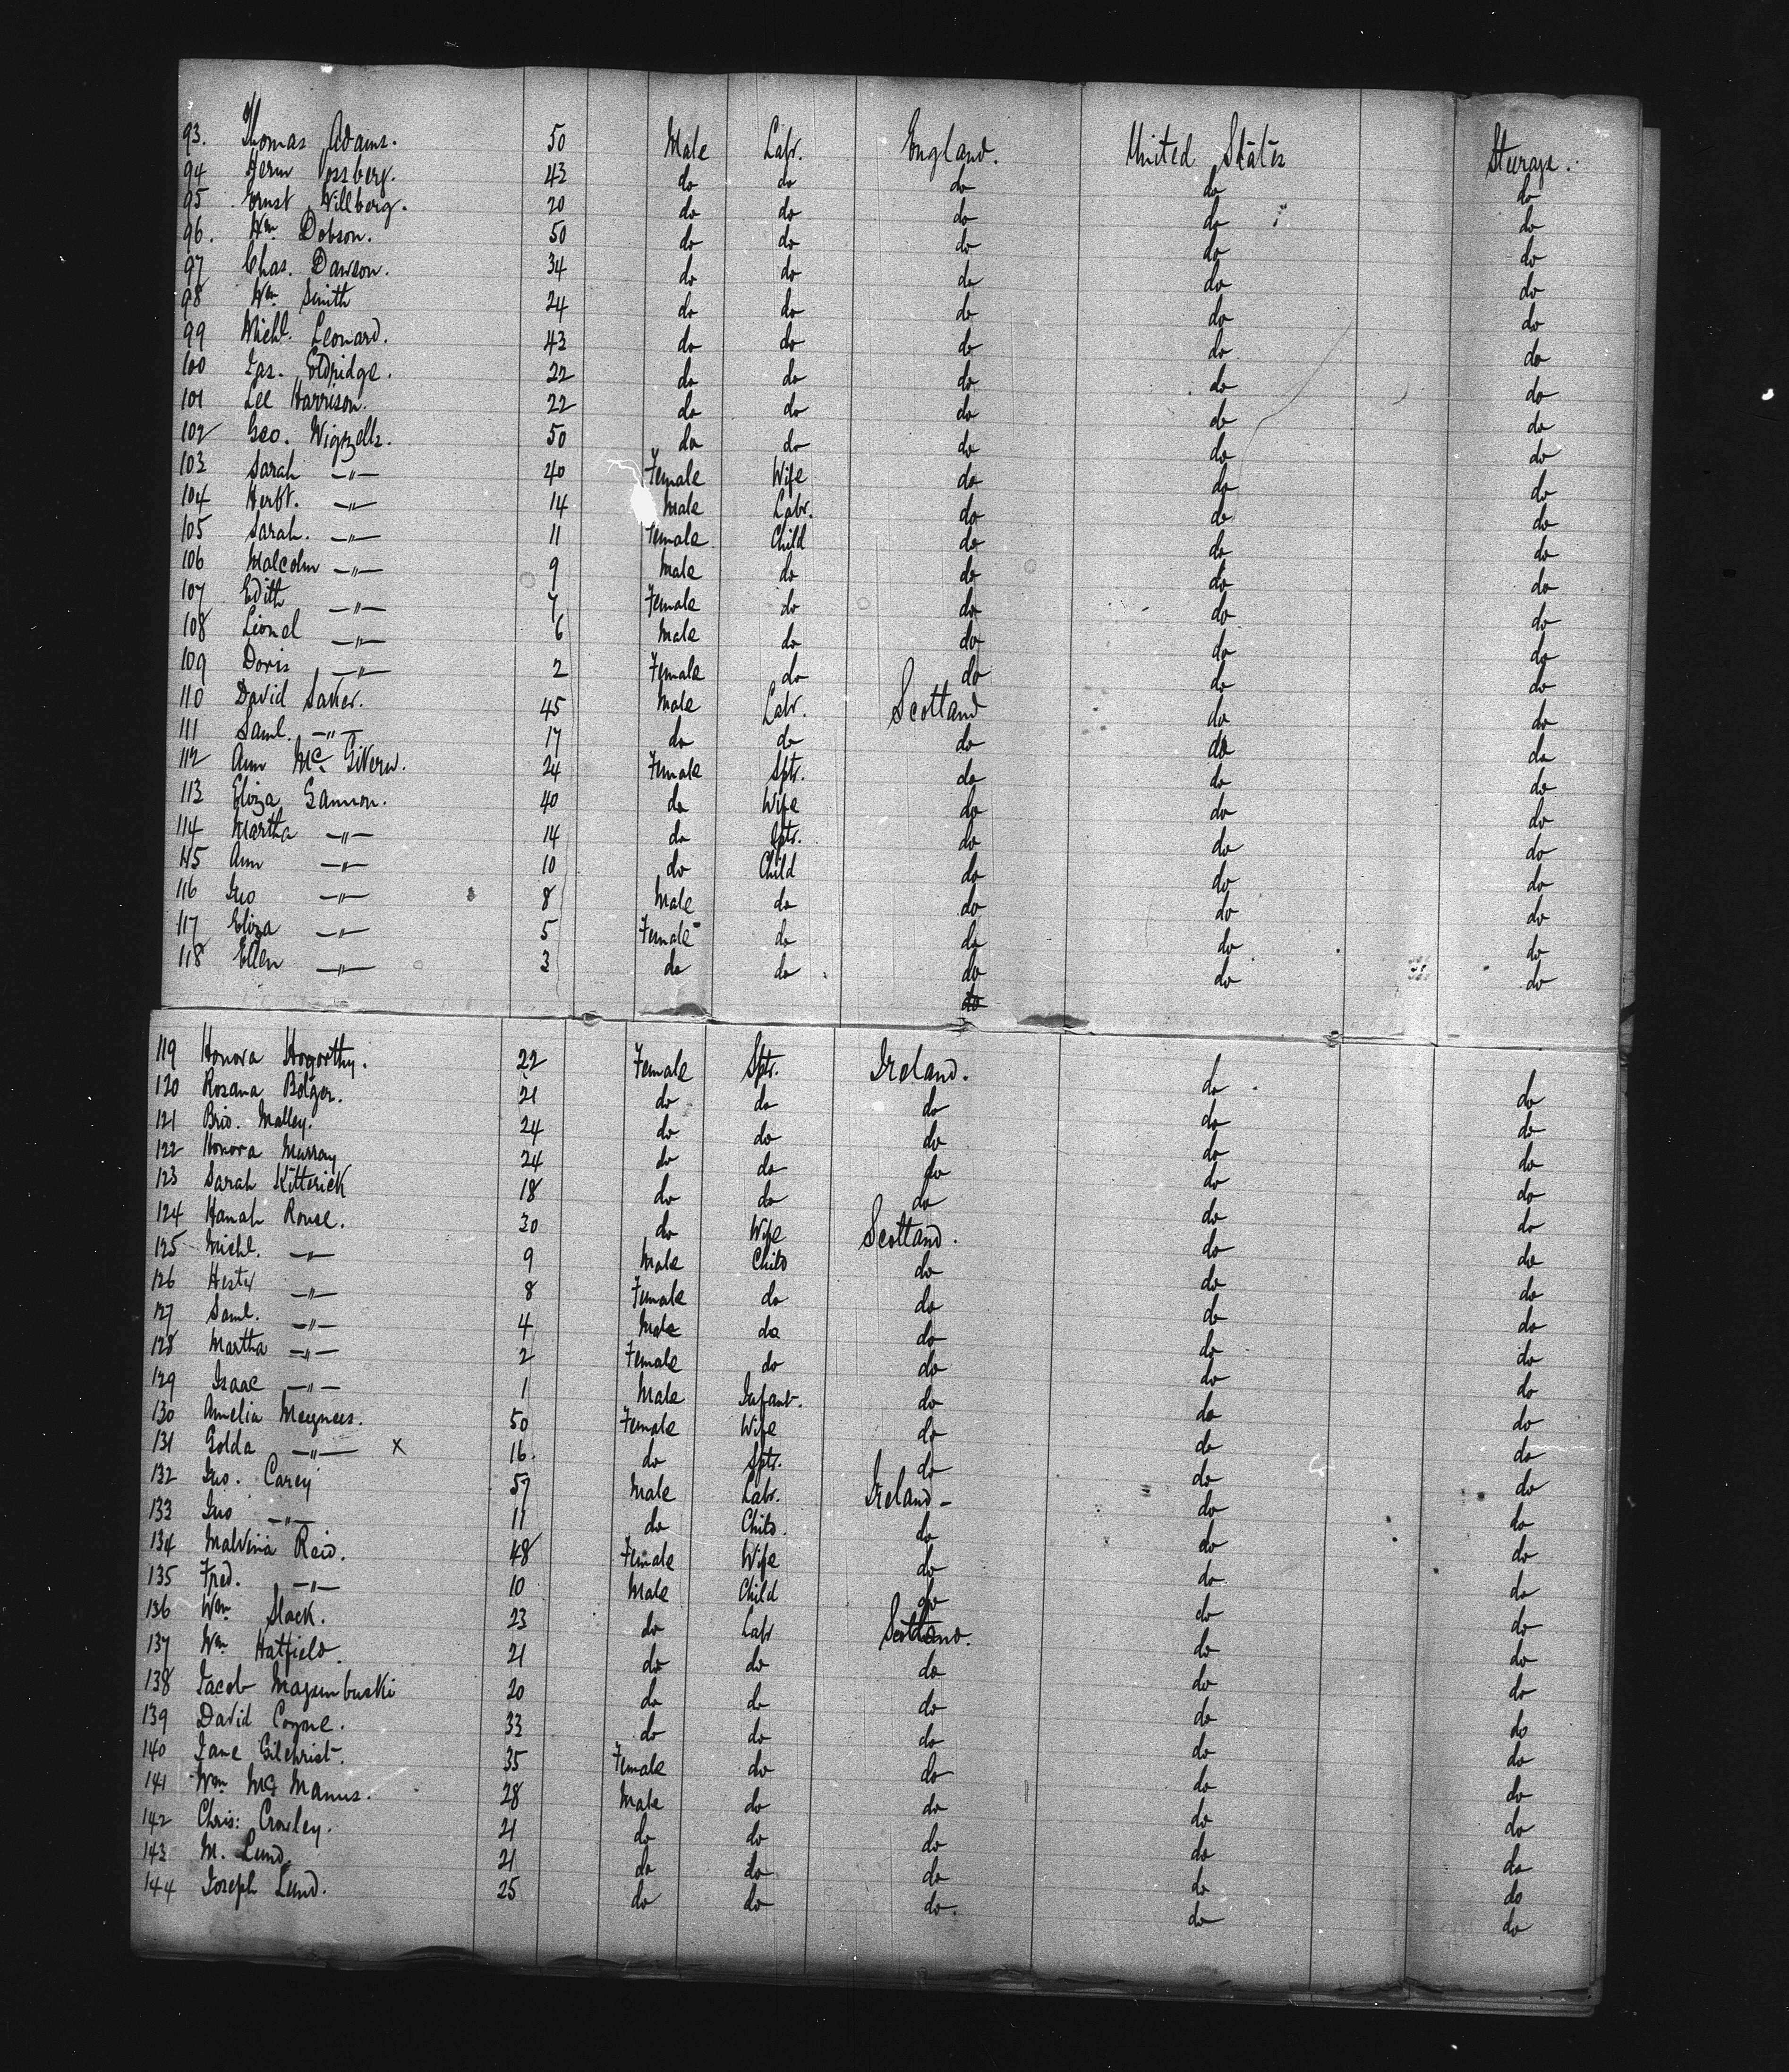 93. Thomas Adams. 50 Male Labr. England. United States Steerage.
94 Herm Vossberg. 43 do do do do do
95 Ernst Willberg. 20 do do do do do
96. Wm. Dobson. 50 do do do do do
97 Chas. Dawson. 34 do do do do do
98 Wm. Smith 24 do do do do do
99 Michl. Leonard. 43 do do do do do
100 Jas. Eldridge. 22 do do do do do
101 Lee Harrison. 22 do do do do do
102 Geo. Wigzells. 50 do do do do do
103 Sarah —"— 40 Female Wife do do do
104 Herbt. —"— 14 Male Labr. do do do
105 Sarah. —"— 11 Female Child do do do
106 Malcolm —"— 9 Male do do do do
107 Edith —"— 7 Female do do do do
108 Lionel —"— 6 Male do do do do
109 Doris —"— 2 Female do do do do
110 David Saker. 45 Male Labr. Scotland do do
111 Saml. —"— 17 do do do do do
112 Ann Mc. Givern. 24 Female Sptr. do do do
113 Eliza Gannon. 40 do Wife do do do
114 Martha —"— 14 do Sptr. do do do
115 Ann —"— 10 do Child do do do
116 Jno —"— 8 Male do do do do
117 Eliza —"— 5 Female do do do do
118 Ellen —"— 3 do do do do do
do
119 Honora Hogorthy. 22 Female Sptr. Ireland. do do
120 Rosana Bolger. 21 do do do do do
121 Brid. Malley. 24 do do do do do
122 Honora Murray 24 do do do do do
123 Sarah Kitterick 18 do do do do do
124 Hanah Rouse. 30 do Wife Scotland. do do
125 Michl. —"— 9 Male Child do do do
126 Hester —"— 8 Female do do do do
127 Saml. —"— 4 Male do do do do
128 Martha —"— 2 Female do do do do
129 Isaac —"— 1 Male Infant. do do do
130 Amelia 50 Female Wife do do do
131 Golda —"— x 16. do Sptr. do do do
132 Jno. Carey 57 Male Labr. Ireland — do do
133 Jno —"— 11 do Child. do do do
134 Malvina Reid. 48 Female Wife do do do
135 Fred. —"— 10 Male Child do do do
136 Wm Slack. 23 do Labr Scotland. do do
137 Wm Hatfield. 21 do do do do do
138 Jacob 20 do do do do do
139 David Coyne. 33 do do do do do
140 Jane Gilchrist. 35 Female do do do do
141 Wm McManus. 28 Male do do do do
142 Chris: Crowley. 21 do do do do do
143 M. Lund. 21 do do do do do
144 Joseph Lund. 25 do do do. do do